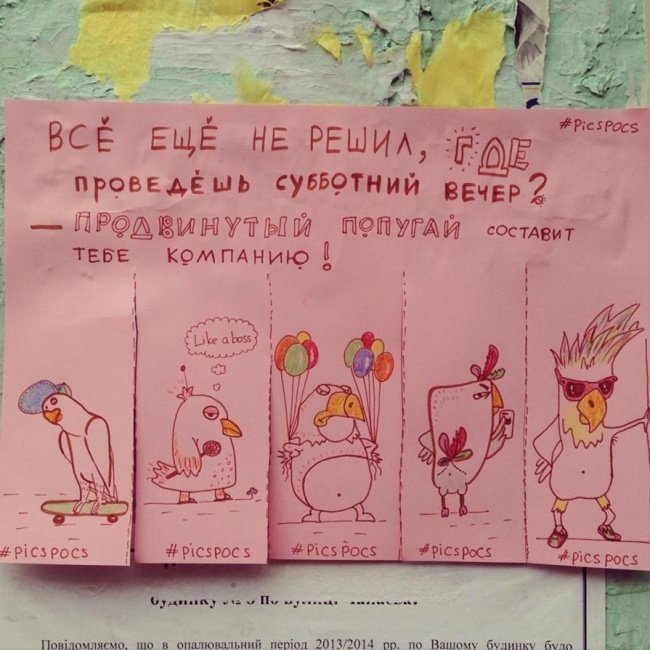 #PICSPOCS
ВСЁ ЕЩЁ НЕ РЕШИЛ, ГДЕ
ПРОВЕДЁШЬ СУББОТНИЙ ВЕЧЕР?
— ПРОДВИНУТЫЙ ПОПУГАЙ СОСТАВИТ
ТЕБЕ КОМПАНИЮ!
Like a boss
#PICSPOCS #PICSPOCS #PICSPOCS #PICSPOCS #PICSPOCS
будинку № по вулиці
Повідомляємо, що в опалювальний період 2013/2014 рр. по Вашому будинку було